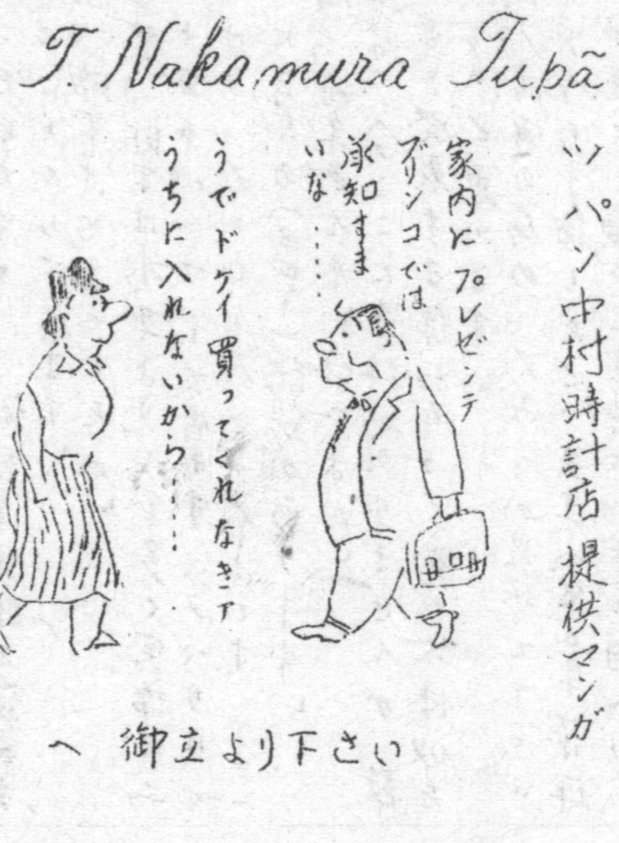 T. Nakamura Tupã
ツパン中村時計店 提供マンガ
家内にプレゼンテ
ブリンコでは
承知すま
いな・・・・・
うでドケイ買ってくれなきァ
うちに入れないから・・・・・
へ 御立より下さい